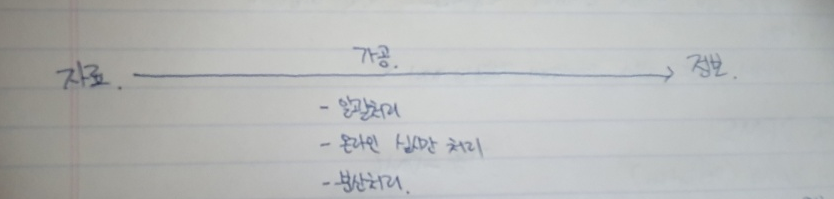 가공.
자료. → 정보.
- 일괄처리
- 온라인 실시간 처리
- 분산처리.